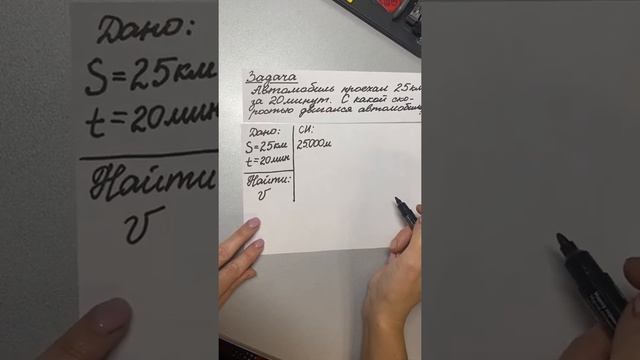 Дано:
S=25км
t=20мин
Найти:
v
Задача
Автомобиль проехал 25км
за 20минут. С какой ско-
ростью двигался автомобиль
Дано:
S=25км
t=20мин
Найти:
v
СИ:
25000м